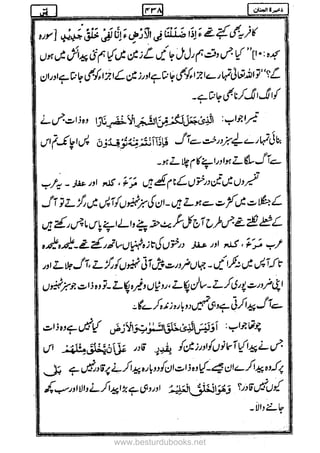 ذخيرة الجنان
۴۳۸
یٰسٓ
کافر یہ بھی کہتے تھے ءَ اِذَا ضَلَلْنَا فِی الْاَرْضِ ءَ اِنَّا لَفِیْ خَلْقٍ جَدِیْدٍ [سورہ
سجدہ: ۱۰] "کیا جس وقت ہم رل مل جائیں گے زمین میں کیا ہم نئی پیدائش میں ہوں
گے؟" تو اللہ تعالیٰ تمہارے اجزاء کو بھی جانتا ہے اور زمین کے اجزاء کو بھی جانتا ہے اور ان
کو الگ الگ کرنا بھی جانتا ہے۔
تیسرا جواب: الَّذِیْ جَعَلَ لَكُمْ مِّنَ الشَّجَرِ الْاَخْضَرِ نَارًا وہ ذات ہے جس نے
بنائی تمہارے لیے سبز درخت سے آگ فَاِذَاۤ اَنْتُمْ مِّنْهُ تُوْقِدُوْنَ پس اچانک تم اس
سے آگ سلگاتے ہو اور اپنے کام چلاتے ہو۔
تفسیروں میں تین درختوں کے نام لکھے ہیں مَرَخْ، کلخ اور عفار۔ یہ عرب
کے جنگلات میں کثرت سے ہوتے ہیں۔ ان کی سبز ٹہنیوں کو آپس میں رگڑتے تو آگ
کے شعلے نکلتے تھے جس طرح آج کل سگریٹ حقہ پینے والے اپنے پاس ماچس رکھتے ہیں
عرب مَرَخْ، کلخ اور عفار درختوں کی تازہ ٹہنیاں ساتھ رکھتے تھے۔ علیحدہ علیحدہ
تاکہ آپس میں ٹکرا نہ جائیں۔ جہاں ضرورت پیش آتی ٹہنیوں کو رگڑتے، آگ جلاتے اور
اپنی ضرورت پوری کرتے۔ سالن پکاتے، روٹیاں وغیرہ پکاتے۔ تو وہ ذات جو سبز ٹہنیوں
سے آگ پیدا کرتی ہے وہی تمہیں دوبارہ زندہ کرے گا۔
چوتھا جواب: اَوَلَیْسَ الَّذِیْ خَلَقَ السَّمٰوٰتِ وَالْاَرْضَ کیا نہیں ہے وہ ذات
جس نے پیدا کیا آسمانوں کو اور زمین کو بِقٰدِرٍ قادر عَلٰۤی اَنْ یَّخْلُقَ مِثْلَهُمْ اس
پر کہ وہ پیدا کرے ان جیسے۔ کیا وہ ذات ان کو دوبارہ پیدا کرنے پر قادر نہیں ہے بَلٰی
کیوں نہیں قادر؟ وَهُوَ الْخَلّٰقُ الْعَلِیْمُ اور وہی ہے بڑا پیدا کرنے والا اور سب کچھ
جاننے والا۔
www.besturdubooks.net